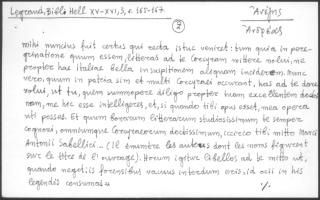 Legrand, Biblio Hell. XV-XVI, 3, σ. 165-167.
②
Ἀνδρης
Ἀνδρέας
mihi nuncius fuit certus qui recta istuc veniret: tum quia in pere-
grinatione quum essem, litteras ad te Corcyram mittere nolui, ne
propter hac Italiae bella in suspitionem aliquam inciderem. Nunc
vero, quum in patria sim et multi Corcyraei occurant, has ad te dare
volui, ut tu, quem summopere diligo propter tuam excellentem doctri-
nam, me hic esse intelligeres, et, si quando tibi opus esset, mea opera
uti posses. Et quum bonarum litterarum studiosissimum te semper
cognovi, omniumque Corcyraeorum doctissimum, iccirco tibi mitto Marci
Antonii Sabellici... (Il énumère les auteurs dont les noms figurent
sur le titre de l'ouvrage). Horum igitur libellos ad te mitto ut,
quando negotiis forensibus vacuus interdum eris, id ocii in his
legendis consumas
./.